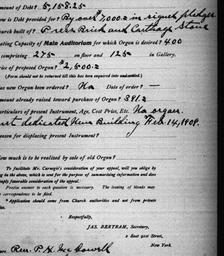 mount of Debt? 5,158.25
is Debt provided for? By over $7,000.00 in signed pledges.
urch built of? Press Brick and Carthage Stone
ating Capacity of Main Auditorium for which Organ is desired? 400
mprising 275 floor and 125 in Gallery.
rice of proposed Organ? $2,500.00
(Form should not be returned till this has been inquired into and settled.)
as new Organ been ordered? No Date of order —
mount already raised toward purchase of Organ? 391.2
articulars of present Instrument, Age, Cost Price, Etc. No organ.
ust dedicated New Building Feb. 14, 1908.
eason for displacing present Instrument?
ow much is to be realized by sale of old Organ?
To facilitate Mr. Carnegie's consideration of your appeal, will you oblige by
ing in the above, which is sent for the purpose of summarizing information and does
mply favorable consideration of the appeal.
Precise answer to each question is necessary. The issuing of blanks may
correspondence to be filed.
* Application should come from Church authorities and not from private
Respectfully,
JAS. BERTRAM, Secretary,
2 East 91st Street,
New York.
Rev. P. H. McDowell